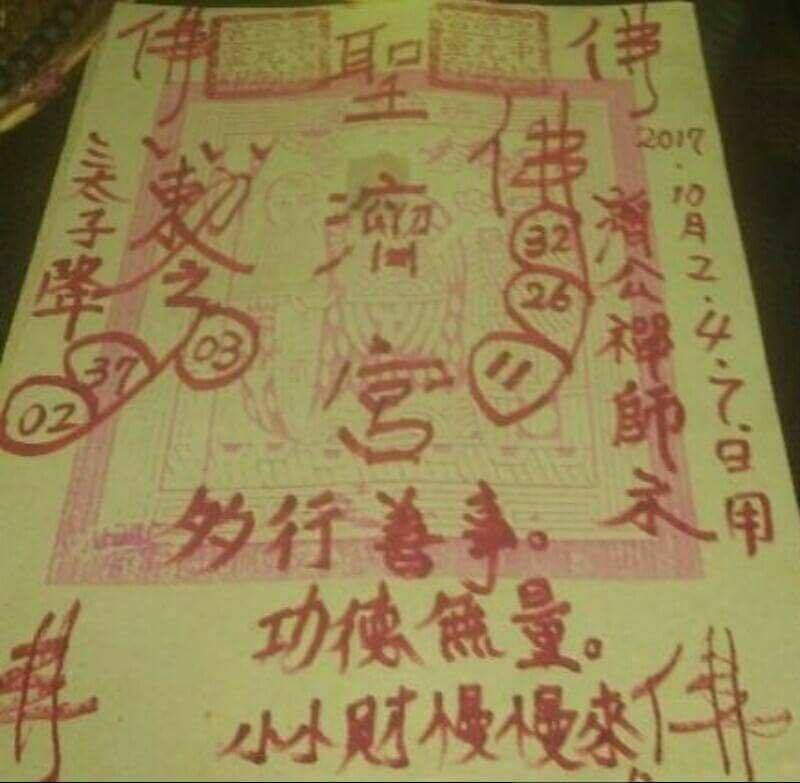 2017.10月2.4.7.日用
濟公禪師示
佛
佛
32
26
11
聖濟宮
勅
之
03
37
02
三太子降
佛
多行善事。
功德無量。
小小財慢慢來
佛
佛